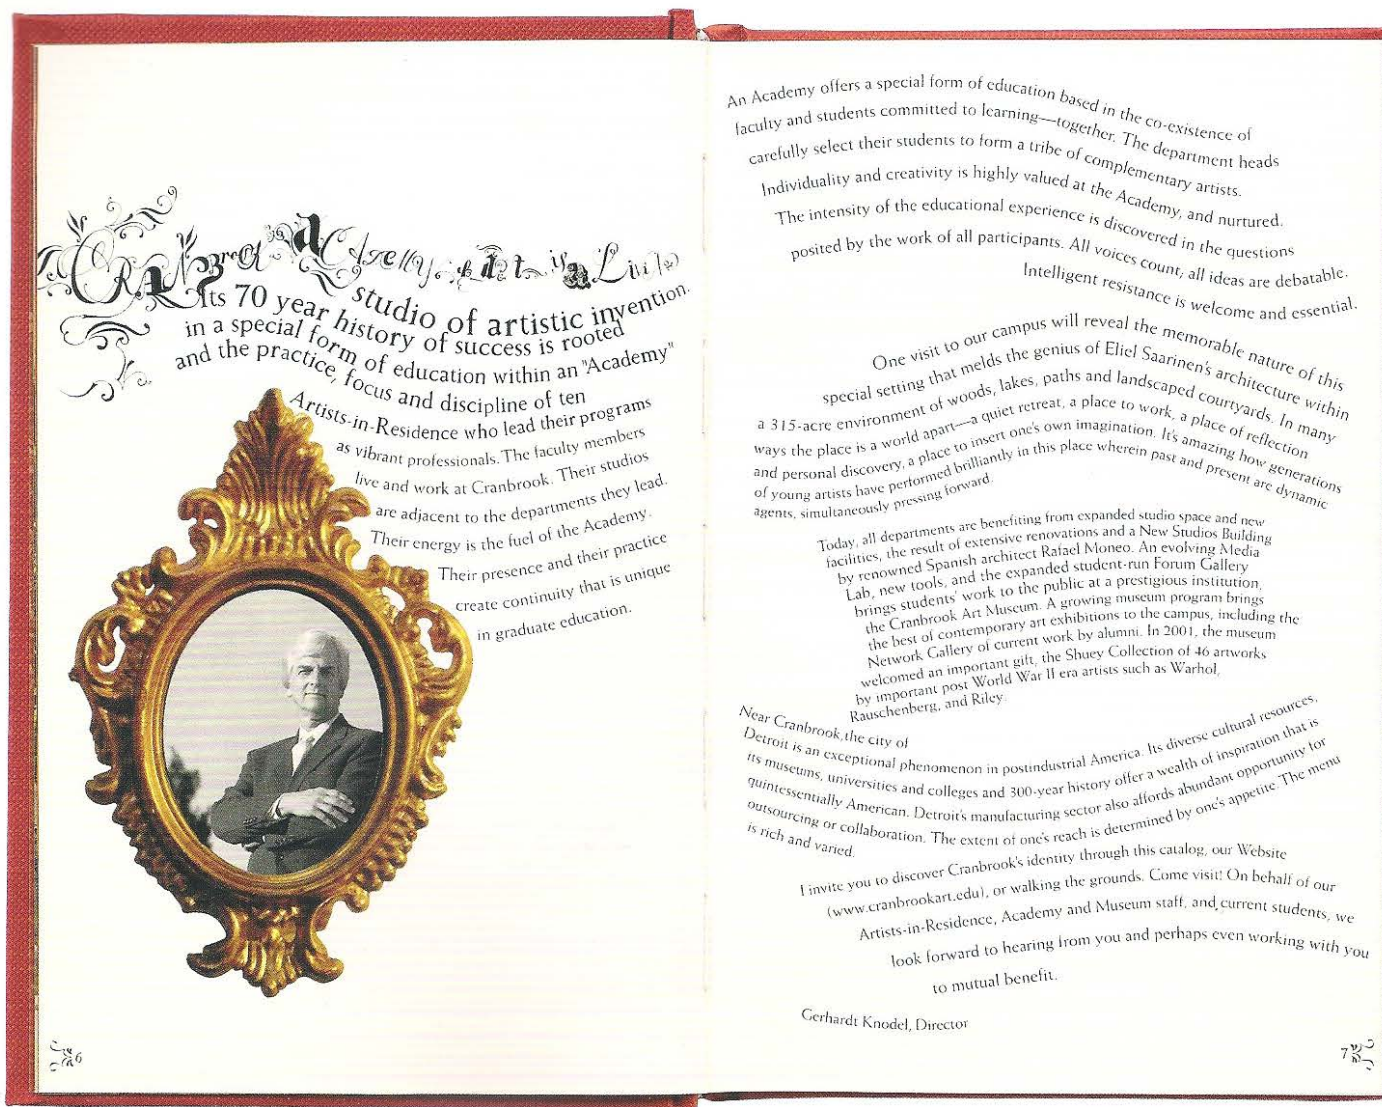 CRANBrook Academy of Art is a
studio of artistic invention.
Its 70 year history of success is rooted
in a special form of education within an "Academy"
and the practice, focus and discipline of ten
Artists-in-Residence who lead their programs
as vibrant professionals. The faculty members
live and work at Cranbrook. Their studios
are adjacent to the departments they lead.
Their energy is the fuel of the Academy.
Their presence and their practice
create continuity that is unique
in graduate education.
6
An Academy offers a special form of education based in the co-existence of
faculty and students committed to learning—together. The department heads
carefully select their students to form a tribe of complementary artists.
Individuality and creativity is highly valued at the Academy, and nurtured.
The intensity of the educational experience is discovered in the questions
posited by the work of all participants. All voices count; all ideas are debatable.
Intelligent resistance is welcome and essential.
One visit to our campus will reveal the memorable nature of this
special setting that melds the genius of Eliel Saarinen's architecture within
a 315-acre environment of woods, lakes, paths and landscaped courtyards. In many
ways the place is a world apart—a quiet retreat, a place to work, a place of reflection
and personal discovery, a place to insert one's own imagination. It's amazing how generations
of young artists have performed brilliantly in this place wherein past and present are dynamic
agents, simultaneously pressing forward.
Today, all departments are benefiting from expanded studio space and new
facilities, the result of extensive renovations and a New Studios Building
by renowned Spanish architect Rafael Moneo. An evolving Media
Lab, new tools, and the expanded student-run Forum Gallery
brings students' work to the public at a prestigious institution,
the Cranbrook Art Museum. A growing museum program brings
the best of contemporary art exhibitions to the campus, including the
Network Gallery of current work by alumni. In 2001, the museum
welcomed an important gift, the Shuey Collection of 46 artworks
by important post World War II era artists such as Warhol,
Rauschenberg, and Riley.
Near Cranbrook, the city of
Detroit is an exceptional phenomenon in postindustrial America. Its diverse cultural resources,
its museums, universities and colleges and 300-year history offer a wealth of inspiration that is
quintessentially American. Detroit's manufacturing sector also affords abundant opportunity for
outsourcing or collaboration. The extent of one's reach is determined by one's appetite. The menu
is rich and varied.
I invite you to discover Cranbrook's identity through this catalog, our Website
(www.cranbrookart.edu), or walking the grounds. Come visit! On behalf of our
Artists-in-Residence, Academy and Museum staff, and current students, we
look forward to hearing from you and perhaps even working with you
to mutual benefit.
Gerhardt Knodel, Director
7